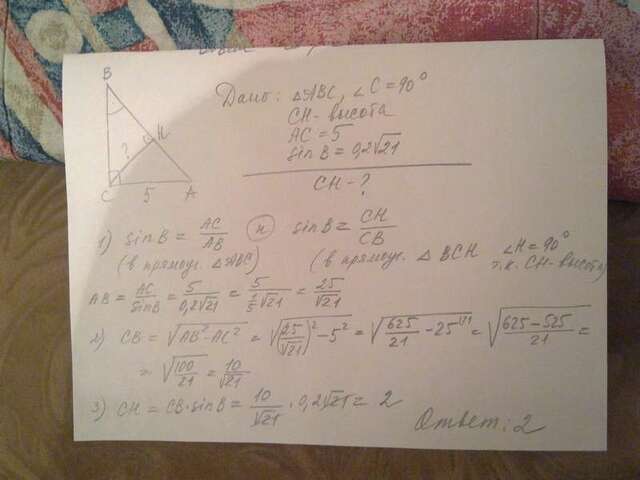 B
H
?
C 5 A
Дано: △ABC, ∠C = 90°
CH - высота
AC = 5
sin B = 0,2√21
CH - ?
1) sin B = AC/AB и sin B = CH/CB
(в прямоуг. △ABC) (в прямоуг. △ BCH ∠H = 90° т.к. CH - высота)
AB = AC/sin B = 5/0,2√21 = 5/(1/5 √21) = 25/√21
2) CB = √(AB² - AC²) = √((25/√21)² - 5²) = √(625/21 - 25^(21) = √((625 - 525)/21) =
= √(100/21) = 10/√21
3) CH = CB · sin B = 10/√21 · 0,2√21 = 2
Ответ: 2